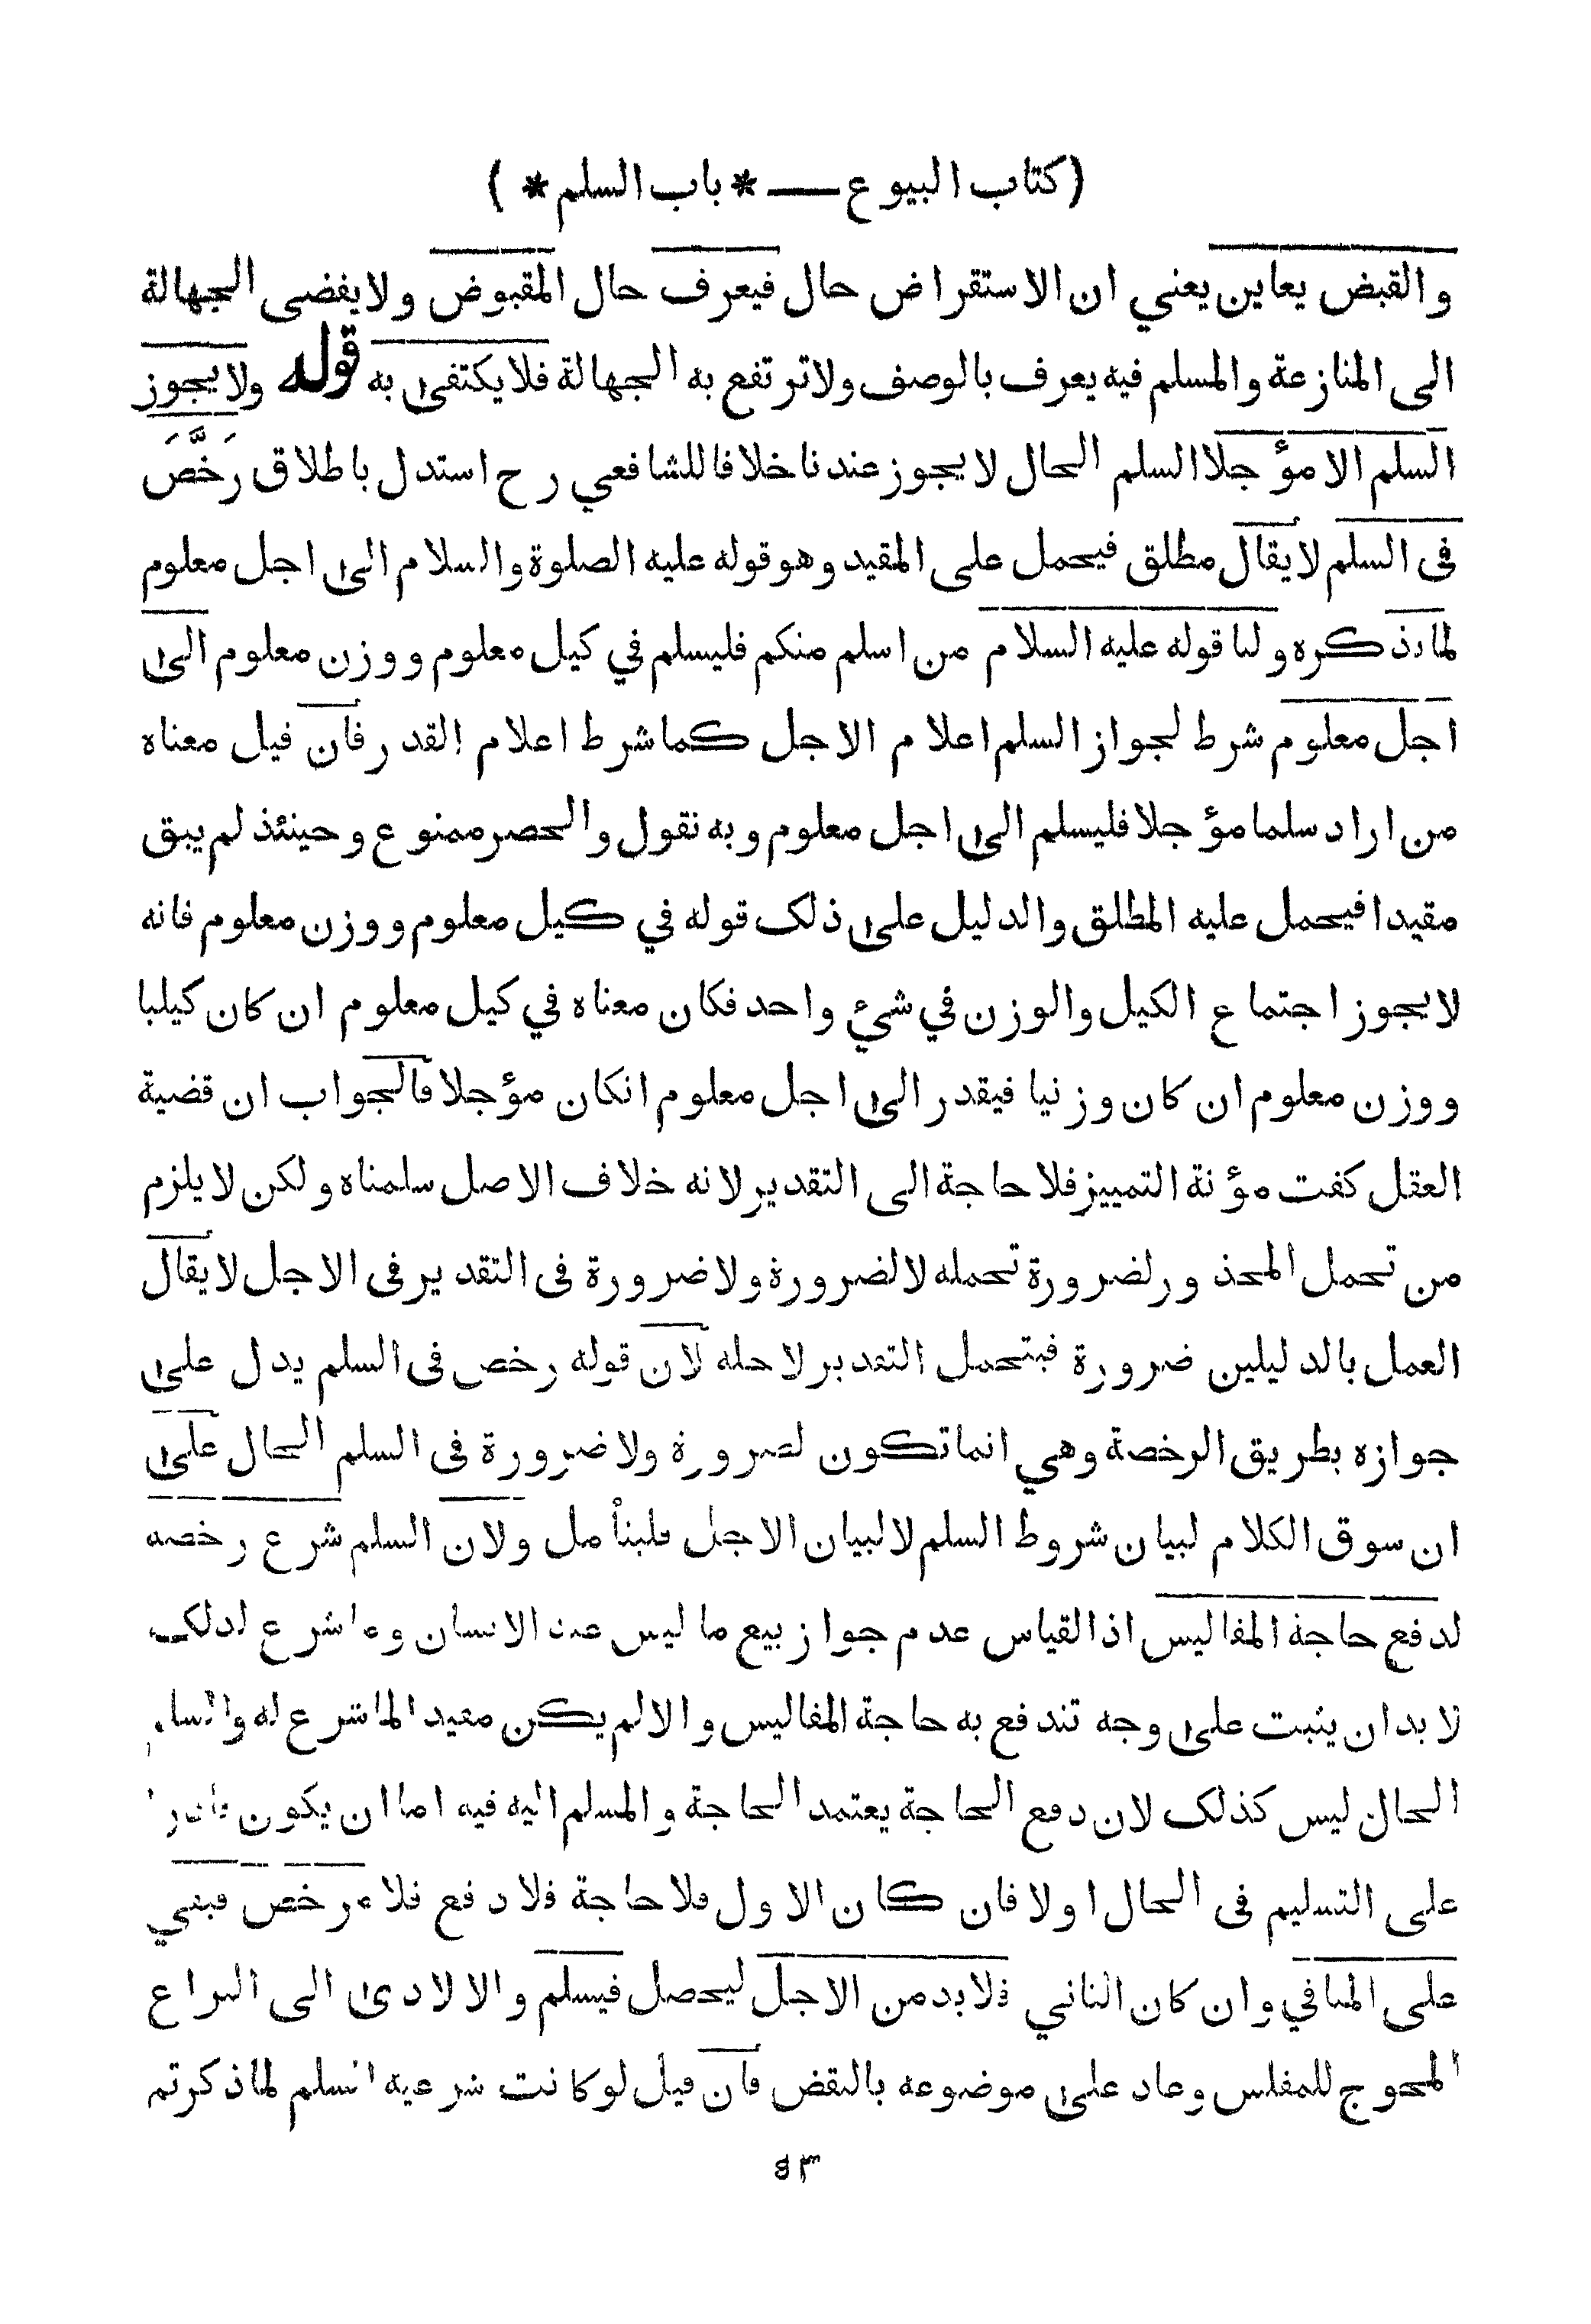 (كتاب البيوع — * باب السلم * )
والقبض يعاين يعني ان الاستقراض حال فيعرف حال المقبوض ولا يفضى الجهالة
الى المنازعة والمسلم فيه يعرف بالوصف ولا ترتفع به الجهالة فلا يكتفى به قوله ولا يجوز
السلم الا مؤجلا السلم الحال لا يجوز عندنا خلافا للشافعي رح استدل باطلاق رَخَّصَ
فى السلم لا يقال مطلق فيحمل على المقيد وهو قوله عليه الصلوة والسلام الى اجل معلوم
لما نذكره ولنا قوله عليه السلام من اسلم منكم فليسلم في كيل معلوم ووزن معلوم الى
اجل معلوم شرط لجواز السلم اعلام الاجل كما شرط اعلام القدر فان قيل معناه
من اراد سلما مؤجلا فليسلم الى اجل معلوم وبه نقول والحصر ممنوع وحينئذ لم يبق
مقيدا فيحمل عليه المطلق والدليل على ذلك قوله في كيل معلوم ووزن معلوم فانه
لا يجوز اجتماع الكيل والوزن في شئ واحد فكان معناه في كيل معلوم ان كان كيليا
ووزن معلوم ان كان وزنيا فيقدر الى اجل معلوم انكان مؤجلا فالجواب ان قضية
العقل كفت مؤنة التمييز فلا حاجة الى التقدير لانه خلاف الاصل سلمناه ولكن لا يلزم
من تحمل المحذور لضرورة تحمله لا لضرورة ولا ضرورة فى التقدير فى الاجل لا يقال
العمل بالدليلين ضرورة فيتحمل التقدير لاجله لان قوله رخص فى السلم يدل على
جوازه بطريق الرخصة وهي انما تكون لضرورة ولا ضرورة فى السلم الحال على
ان سوق الكلام لبيان شروط السلم لا لبيان الاجل فليتأمل ولان السلم شرع رخصة
لدفع حاجة المفاليس اذ القياس عدم جواز بيع ما ليس عند الانسان وما شرع لذلك
لا بد ان يثبت على وجه تندفع به حاجة المفاليس والا لم يكن مفيد الما شرع له والسلم
الحال ليس كذلك لان دفع الحاجة يعتمد الحاجة والمسلم اليه فيه اما ان يكون قادرا
على التسليم فى الحال او لا فان كان الاول فلا حاجة فلا دفع فلا مرخص فبقي
على النافي وان كان الثاني فلا بد من الاجل ليحصل فيسلم والا لادى الى النزاع
المحوج للمفلس وعاد على موضوعه بالنقض فان قيل لو كانت شرعية السلم لما ذكرتم